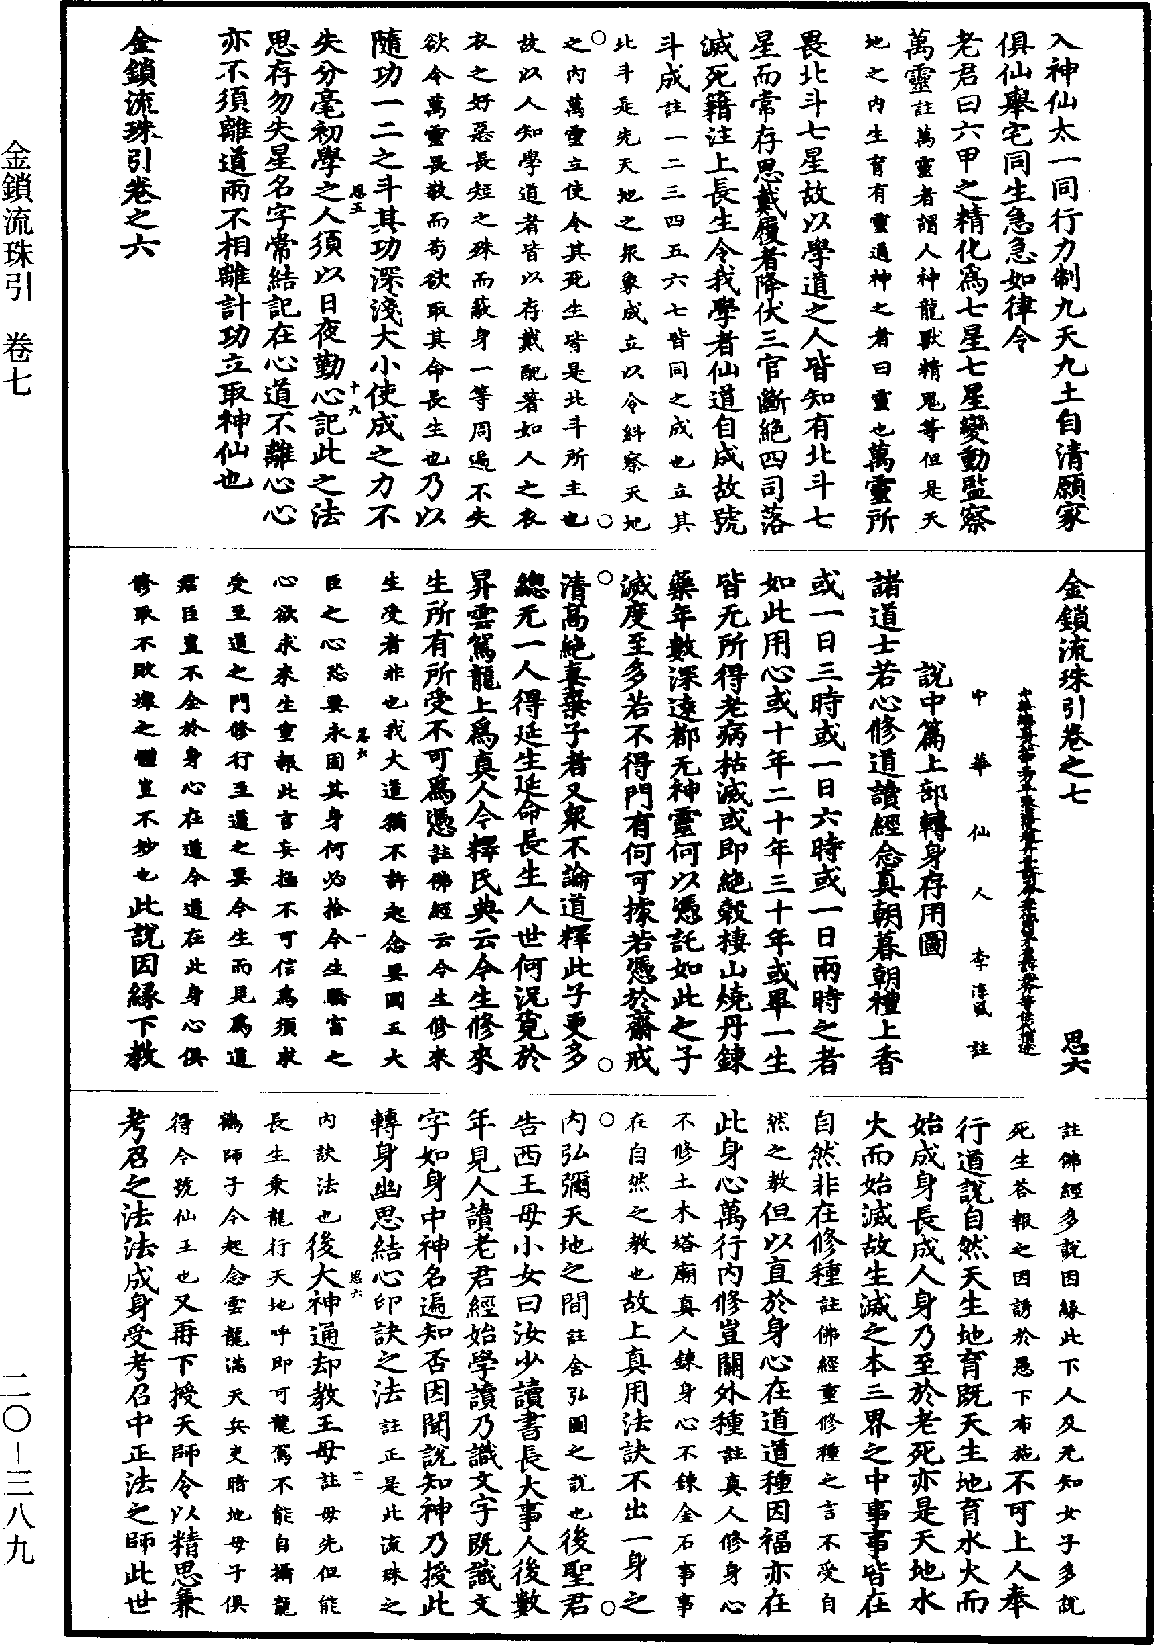 入神仙太一同行力制九天九土自清願家
俱仙舉宅同生急急如律令
老君曰六甲之精化為七星七星變動監察
萬靈註萬靈者謂人神龍獸精鬼等但是天
地之內生育有靈通神之者曰靈也萬靈所
畏北斗七星故以學道之人皆知有北斗七
星而常存思戴履者降伏三官斷絕四司落
滅死籍注上長生令我學者仙道自成故號
斗成註一二三四五六七皆同之成也立其
北斗是先天地之衆象成立以令糾察天地
之內萬靈立使令其死生皆是北斗所主也
故以人知學道者皆以存戴配著如人之衣
衣之好惡長短之殊而蔽身一等周遍不失
欲令萬靈畏敬而苟欲取其命長生也乃以
隨功一二之斗其功深淺大小使成之力不
思五
十九
失分毫初學之人須以日夜勤心記此之法
思存勿失星名字常結記在心道不離心心
亦不須離道兩不相離計功立取神仙也
金鎖流珠引卷之六
金鎖流珠引卷之七
思六
中華仙人李淳風註
說中篇上部轉身存用圖
諸道士若心修道讀經念真朝暮朝禮上香
或一日三時或一日六時或一日兩時之者
如此用心或十年二十年三十年或畢一生
皆无所得老病枯滅或即絕穀棲山燒丹鍊
藥年數深遠都无神靈何以憑託如此之子
滅度至多若不得門有何可據若憑於齋戒
清高絕真棄子者又衆不論道釋此子更多
總无一人得延生延命長生人世何況覓於
昇雲駕龍上為真人今釋氏典云今生修來
生所有所受不可為憑註佛經云今生修來
生受者非也我大道猶不許起念要國王大
思六
一
臣之心恐要永固其身何必捨今生驕富之
心欲求來生重報此言妄極不可信為須求
受至道之門修行至道之要今生而見為道
君臣豈不全於身心在道今道在此身心俱
修取不敗壞之體豈不妙也此說因緣下教
註佛經多說因緣此下人及无知女子多說
死生荅報之因誘於愚下布施不可上人奉
行道說自然天生地育既天生地育水大而
始成身長成人身乃至於老死亦是天地水
火而始滅故生滅之本三界之中事事皆在
自然非在修種註佛經重修種之言不受自
然之教但以直於身心在道道種因福亦在
此身心萬行內修豈關外種註真人修身心
不修土木塔廟真人鍊身心不鍊金石事事
在自然之教也故上真用法訣不出一身之
內弘彌天地之間註含弘圖之說也後聖君
告西王母小女曰汝少讀書長大事人後數
年見人讀老君經始學讀乃識文字既識文
字如身中神名遍知否因聞說知神乃授此
轉身幽思結心印訣之法註正是此流珠之
內訣法也後大神通却教王母註母先但能
思六
二
長生乘龍行天地呼即可龍駕不能自攝龍
為師子今起念雲龍滿天兵吏暗地母子俱
得今號仙王也又再下授天師令以精思兼
考召之法法成身受考召中正法之師此世
金鎖流珠引 卷七
二〇－三八九